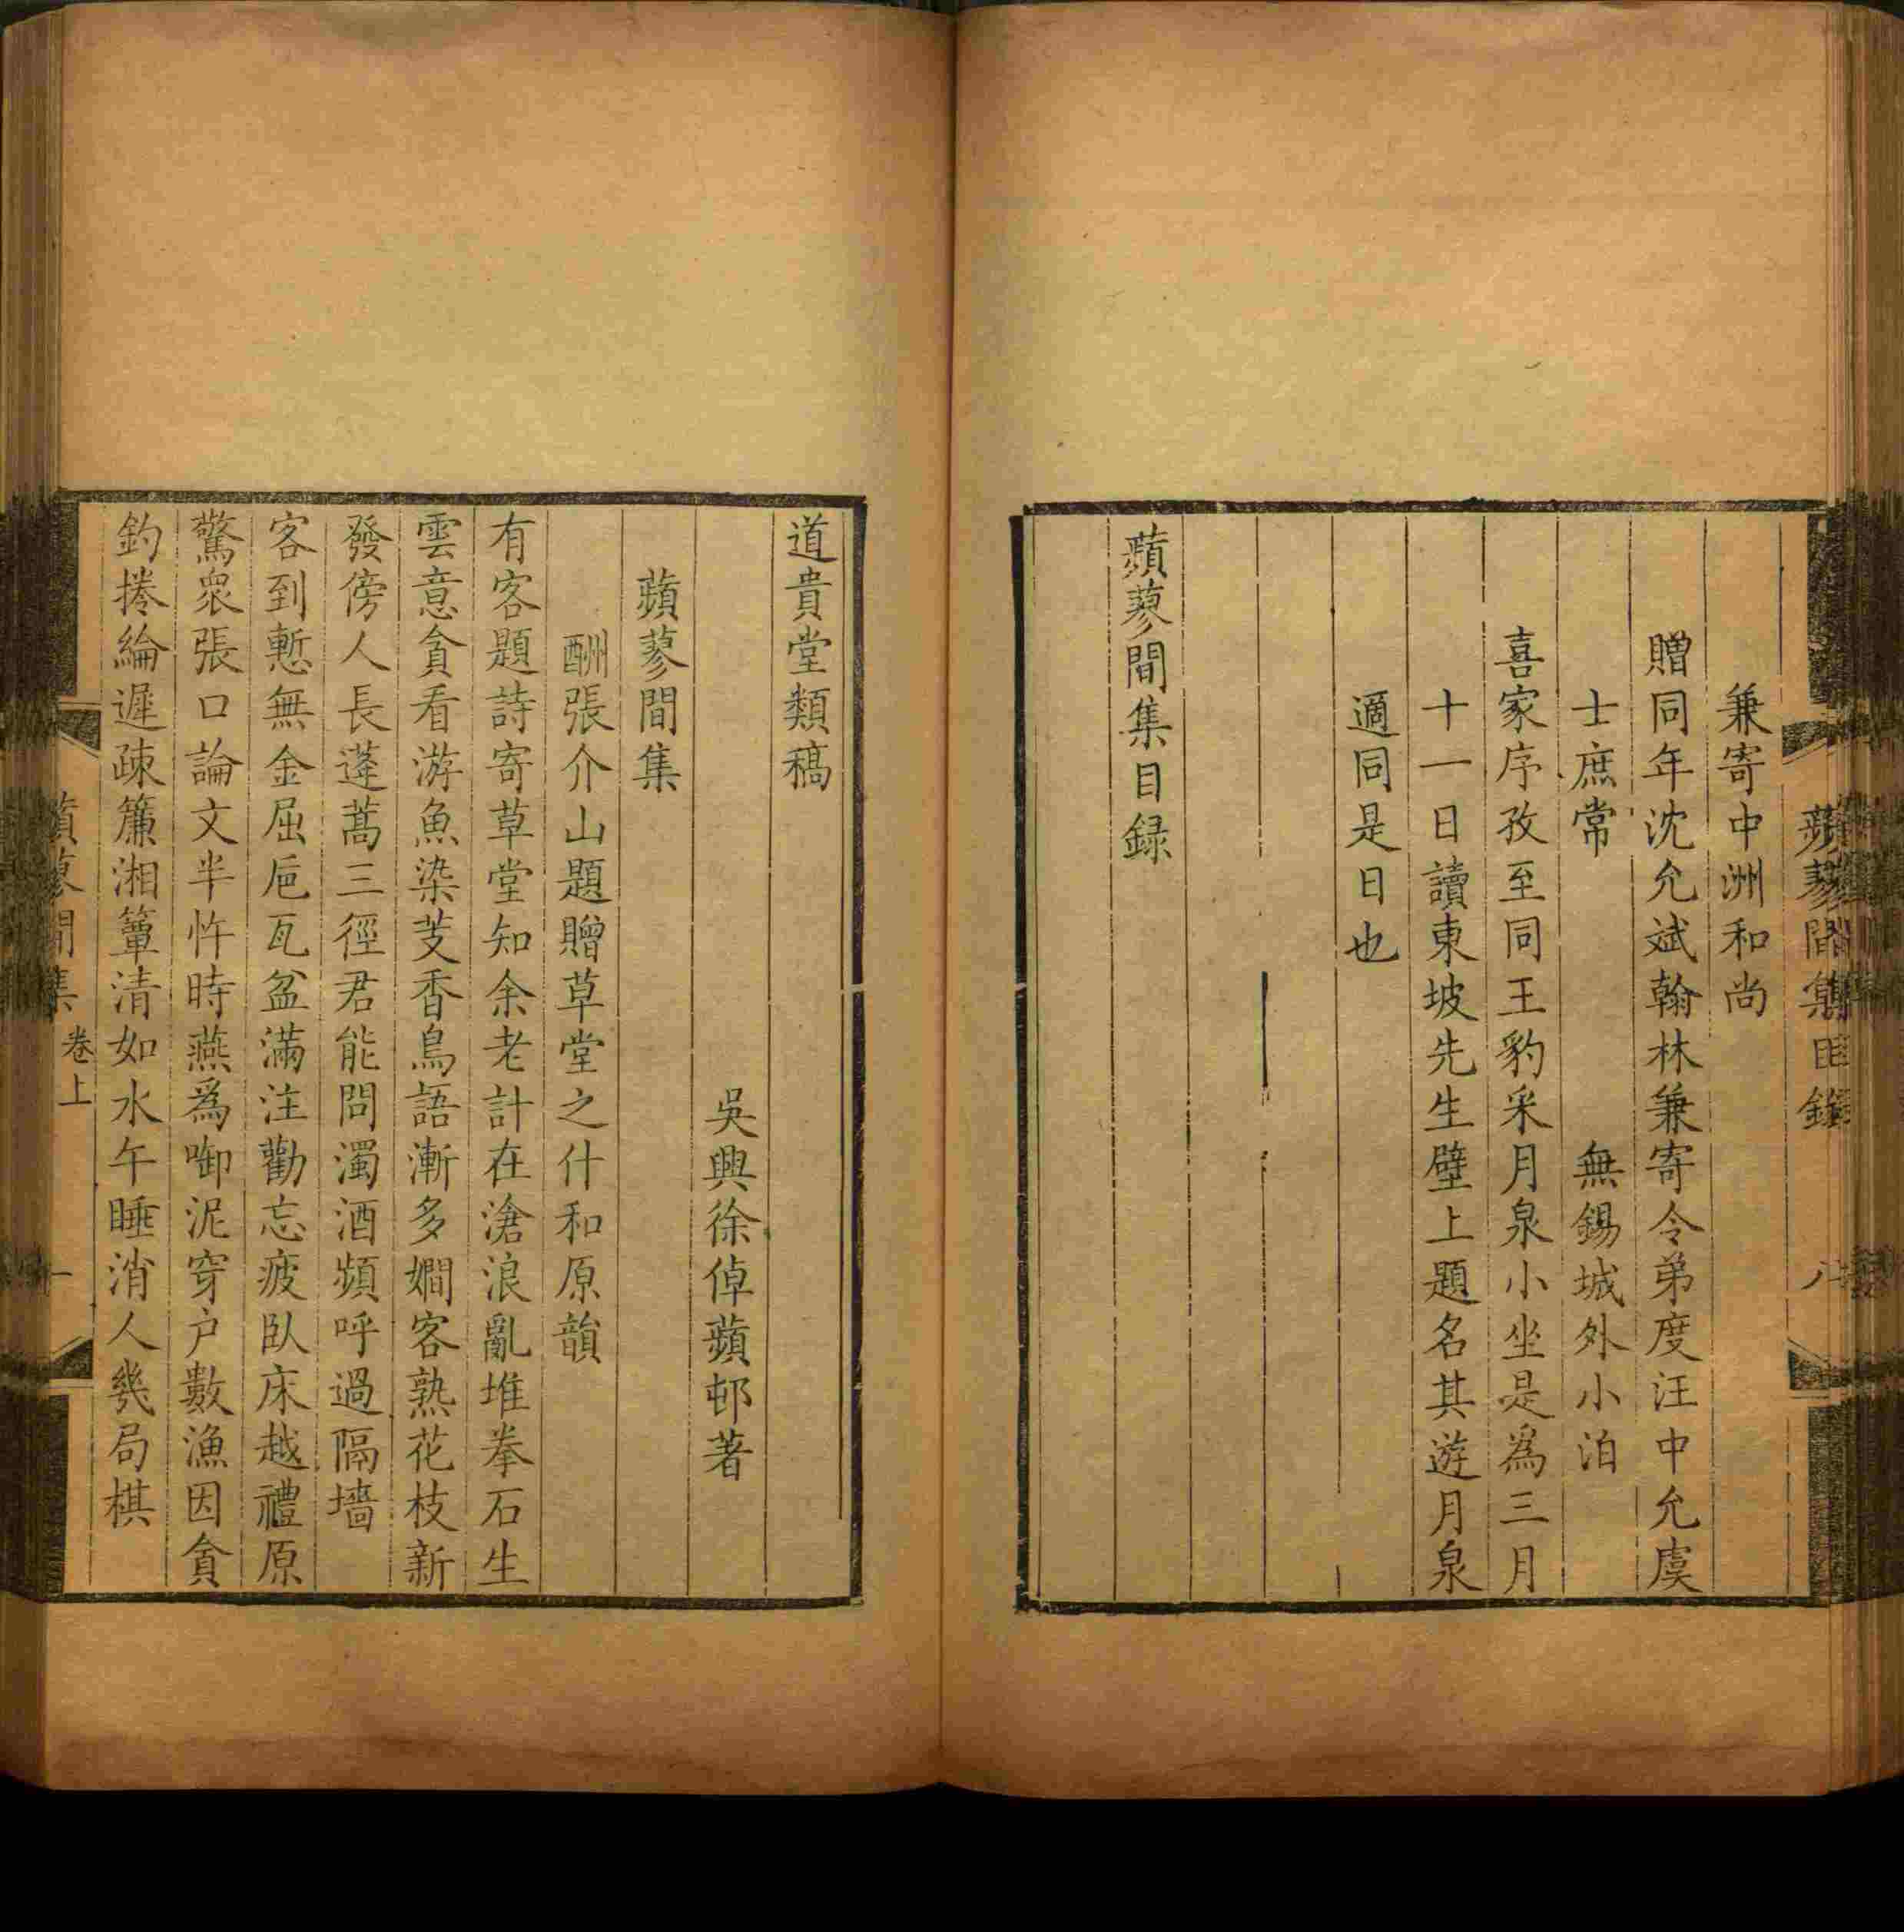 蘋蓼間集目錄 八
兼寄中洲和尚
贈同年沈允斌翰林兼寄令弟度汪中允虞
士庶常 無錫城外小泊
喜家序孜至同王豹采月泉小坐是爲三月
十一日讀東坡先生壁上題名其遊月泉
適同是日也
蘋蓼間集目録
道貴堂類稿
吳興徐倬蘋邨著
蘋蓼間集
酬張介山題贈草堂之什和原韻
有客題詩寄草堂知余老計在滄浪亂堆拳石生
雲意貪看游魚染芰香鳥語漸多嫺客熟花枝新
發傍人長蓬蒿三徑君能問濁酒頻呼過隔墻
客到慙無金屈巵瓦盆滿注勸忘疲臥床越禮原
驚衆張口論文半忤時燕爲啣泥穿户數漁因貪
釣捲綸遲疎簾湘簟清如水午睡消人幾局棋
間集 卷上 一